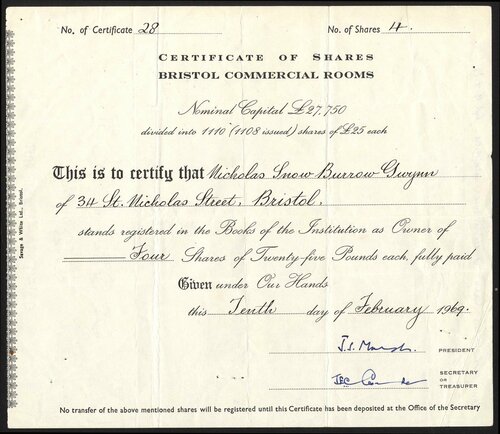 No. of Certificate 28
No. of Shares 4.
CERTIFICATE OF SHARES
BRISTOL COMMERCIAL ROOMS
Nominal Capital £27,750
divided into 1110 (1108 issued) shares of £25 each
This is to certify that Nicholas Snow Burrow Gwynn
of 34 St. Nicholas Street, Bristol.
stands registered in the Books of the Institution as Owner of
Four Shares of Twenty-five Pounds each, fully paid
Given under Our Hands
this Tenth day of February 1969.
PRESIDENT
SECRETARY
OR
TREASUPER
No transfer of the above mentioned shares will be registered until this Certificate has been deposited at the Office of the Secretary
Savage & White Ltd., Bristol.